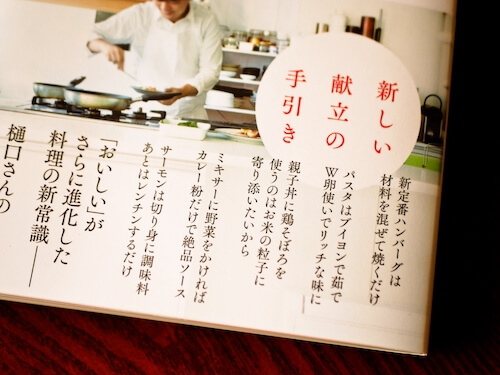 新しい
献立の
手引き
新定番ハンバーグは
材料を混ぜて焼くだけ
パスタはブイヨンで茹で
W卵使いでリッチな味に
親子丼に鶏そぼろを
使うのはお米の粒子に
寄り添いたいから
ミキサーに野菜をかければ
カレー粉だけで絶品ソース
サーモンは切り身に調味料
あとはレンチンするだけ
「おいしい」が
さらに進化した
料理の新常識――
樋口さんの